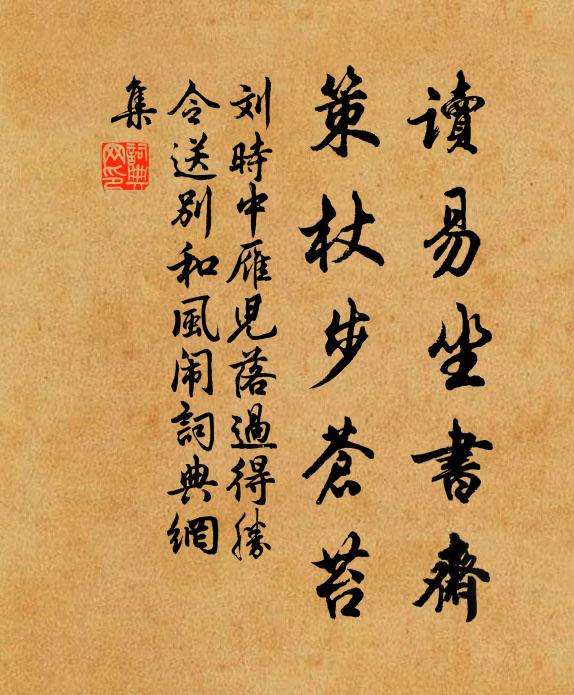 讀易坐書齋
策杖步蒼苔
刘時中雁児落過得勝
令送別和風闹詞典網
集
詞典
网印